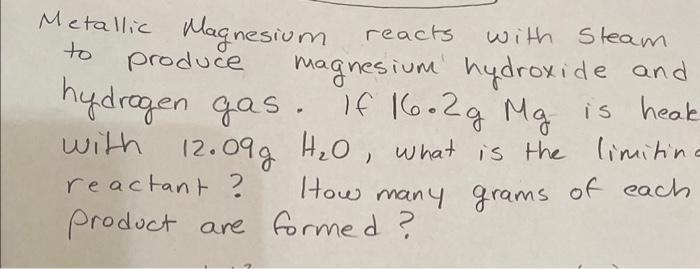 Metallic Magnesium reacts with Steam
to produce magnesium hydroxide and
hydrogen gas. If 16.2g Mg is heat
with 12.09g H₂O, what is the limiting
reactant? How many grams of each
product are formed?